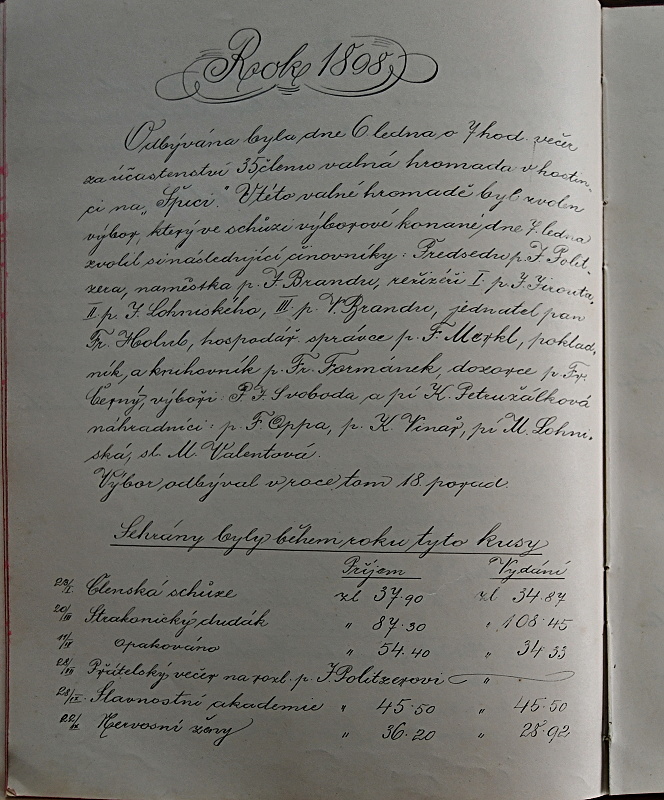 Rok 1898
Odbývána byla dne 6. ledna o 7 hod. večer
za účastenství 35 členů valná hromada v hostin-
ci na „Špici." V této valné hromadě byl zvolen
výbor, který ve schůzi výborové konané dne 7. ledna
zvolil si následující činovníky: Předsedu p. J. Polit-
zera, náměstka p. J. Brandu, režiséři I. p. J. Jirouta,
II. p. J. Lohniského, III. p. V. Brandu, jednatel pan
Fr. Holub, hospodář. správce p. F. Merkl, poklad-
ník, a knihovník p. Fr. Formánek, dozorce p. Fr.
Černý, výboři: P. J. Svoboda a pí K. Petružálková
náhradníci: p. F. Oppa, p. K. Vinař, pí M. Lohni-
ská, sl. M. Valentová.
Výbor odbýval v roce tom 18. porad.
Sehrány byly během roku tyto kusy
Příjem Vydání
Členská schůze zl 37.90 zl 34.87
20/III Strakonický dudák " 87.30 " 108.45
opakováno " 54.40 " 34 33
Přátelský večer na rozl. p. J. Politzerovi "
Slavnostní akademie " 45.50 " 45.50
Nervosní ženy " 36.20 " 28.92